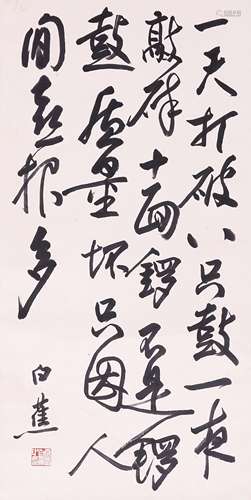 一天打破八只鼓一夜
敲碎十面锣不是锣
鼓质量坏只因人
间喜报多
白蕉